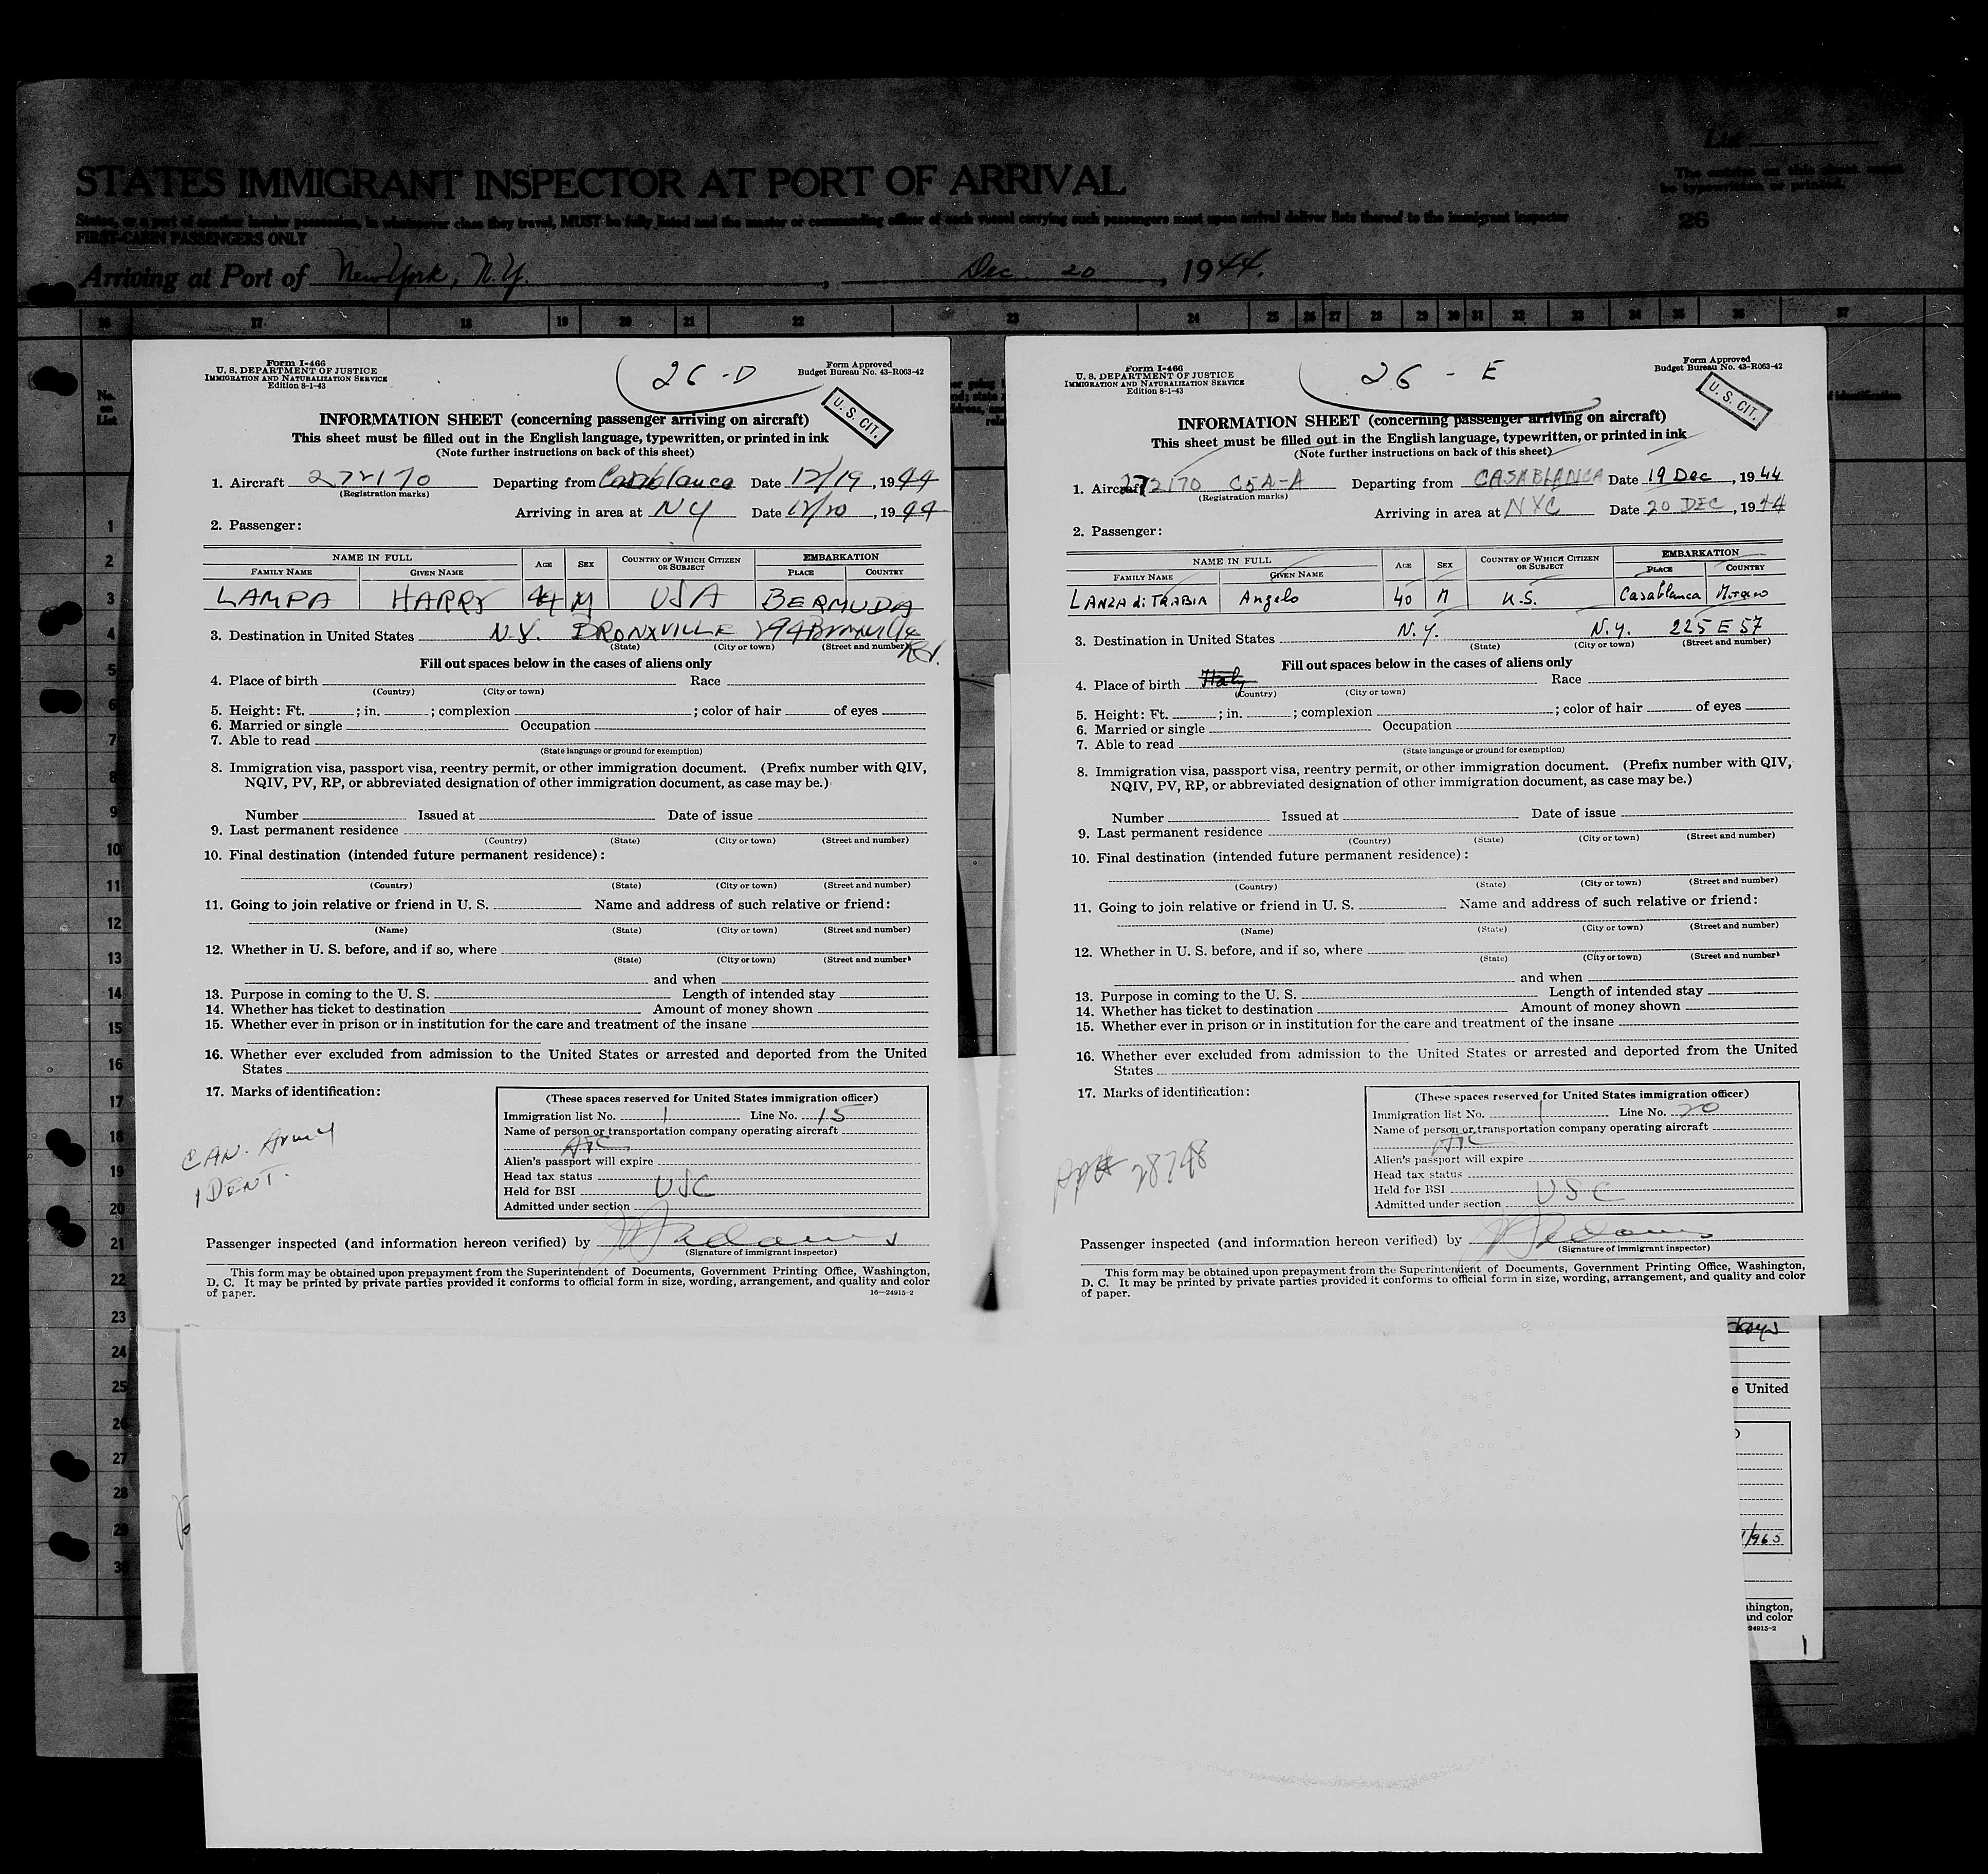 STATES IMMIGRANT INSPECTOR AT PORT OF ARRIVAL
States, or a part of another insular possession, in whatsoever class they travel, MUST be fully listed and the master or commanding officer of each vessel carrying such passengers must upon arrival deliver lists thereof to the immigrant inspector
FIRST-CABIN PASSENGERS ONLY
List
The entries on this sheet must
be typewritten or printed.
26
Arriving at Port of New York, N.Y. , Dec. 20 , 1944.
16 17 18 19 20 21 22 23 24 25 26 27 28 29 30 31 32 33 34 35 36 37
No.
on
List
1
2
3
4
5
6
7
8
9
10
11
12
13
14
15
16
17
18
19
20
21
22
23
24
25
26
27
28
29
30
Form I-466
U. S. DEPARTMENT OF JUSTICE
IMMIGRATION AND NATURALIZATION SERVICE
Edition 8-1-43
26-D
Form Approved
Budget Bureau No. 43-R063-42
U. S. CIT.
INFORMATION SHEET (concerning passenger arriving on aircraft)
This sheet must be filled out in the English language, typewritten, or printed in ink
(Note further instructions on back of this sheet)
1. Aircraft 272170 Departing from Casablanca Date 12/19, 1944
(Registration marks)
Arriving in area at NY Date 12/20, 1944
2. Passenger:
NAME IN FULL AGE SEX COUNTRY OF WHICH CITIZEN OR SUBJECT EMBARKATION
FAMILY NAME GIVEN NAME PLACE COUNTRY
LAMPA HARRY 44 M USA BERMUDA
3. Destination in United States N.Y. BRONXVILLE 294 Bronxville Rd.
(State) (City or town) (Street and number)
Fill out spaces below in the cases of aliens only
4. Place of birth Race
(Country) (City or town)
5. Height: Ft. ; in. ; complexion ; color of hair of eyes
6. Married or single Occupation
7. Able to read
(State language or ground for exemption)
8. Immigration visa, passport visa, reentry permit, or other immigration document. (Prefix number with QIV,
NQIV, PV, RP, or abbreviated designation of other immigration document, as case may be.)
Number Issued at Date of issue
9. Last permanent residence
(Country) (State) (City or town) (Street and number)
10. Final destination (intended future permanent residence):
(Country) (State) (City or town) (Street and number)
11. Going to join relative or friend in U. S. Name and address of such relative or friend:
(Name) (State) (City or town) (Street and number)
12. Whether in U. S. before, and if so, where
(State) (City or town) (Street and number)
and when
13. Purpose in coming to the U. S. Length of intended stay
14. Whether has ticket to destination Amount of money shown
15. Whether ever in prison or in institution for the care and treatment of the insane
16. Whether ever excluded from admission to the United States or arrested and deported from the United
States
17. Marks of identification:
CAN. Army
IDENT.
(These spaces reserved for United States immigration officer)
Immigration list No. 1 Line No. 15
Name of person or transportation company operating aircraft
ATC
Alien's passport will expire
Head tax status
Held for BSI USC
Admitted under section
Passenger inspected (and information hereon verified) by
(Signature of immigrant inspector)
This form may be obtained upon prepayment from the Superintendent of Documents, Government Printing Office, Washington,
D. C. It may be printed by private parties provided it conforms to official form in size, wording, arrangement, and quality and color
of paper.
16—24915-2
Form I-466
U. S. DEPARTMENT OF JUSTICE
IMMIGRATION AND NATURALIZATION SERVICE
Edition 8-1-43
26 - E
Form Approved
Budget Bureau No. 43-R063-42
U. S. CIT.
INFORMATION SHEET (concerning passenger arriving on aircraft)
This sheet must be filled out in the English language, typewritten, or printed in ink
(Note further instructions on back of this sheet)
1. Aircraft 272170 C5A-A Departing from CASABLANCA Date 19 Dec, 1944
(Registration marks)
Arriving in area at NYC Date 20 DEC, 1944
2. Passenger:
NAME IN FULL AGE SEX COUNTRY OF WHICH CITIZEN OR SUBJECT EMBARKATION
FAMILY NAME GIVEN NAME PLACE COUNTRY
LANZA di TRABIA Angelo 40 M U.S. Casablanca Morocco
3. Destination in United States N.Y. N.Y. 225 E 57
(State) (City or town) (Street and number)
Fill out spaces below in the cases of aliens only
4. Place of birth Italy Race
(Country) (City or town)
5. Height: Ft. ; in. ; complexion ; color of hair of eyes
6. Married or single Occupation
7. Able to read
(State language or ground for exemption)
8. Immigration visa, passport visa, reentry permit, or other immigration document. (Prefix number with QIV,
NQIV, PV, RP, or abbreviated designation of other immigration document, as case may be.)
Number Issued at Date of issue
9. Last permanent residence
(Country) (State) (City or town) (Street and number)
10. Final destination (intended future permanent residence):
(Country) (State) (City or town) (Street and number)
11. Going to join relative or friend in U. S. Name and address of such relative or friend:
(Name) (State) (City or town) (Street and number)
12. Whether in U. S. before, and if so, where
(State) (City or town) (Street and number)
and when
13. Purpose in coming to the U. S. Length of intended stay
14. Whether has ticket to destination Amount of money shown
15. Whether ever in prison or in institution for the care and treatment of the insane
16. Whether ever excluded from admission to the United States or arrested and deported from the United
States
17. Marks of identification:
28748
(These spaces reserved for United States immigration officer)
Immigration list No. 1 Line No. 20
Name of person or transportation company operating aircraft
ATC
Alien's passport will expire
Head tax status
Held for BSI USC
Admitted under section
Passenger inspected (and information hereon verified) by
(Signature of immigrant inspector)
This form may be obtained upon prepayment from the Superintendent of Documents, Government Printing Office, Washington,
D. C. It may be printed by private parties provided it conforms to official form in size, wording, arrangement, and quality and color
of paper.
days
e United
/965
hington,
and color
24915-2